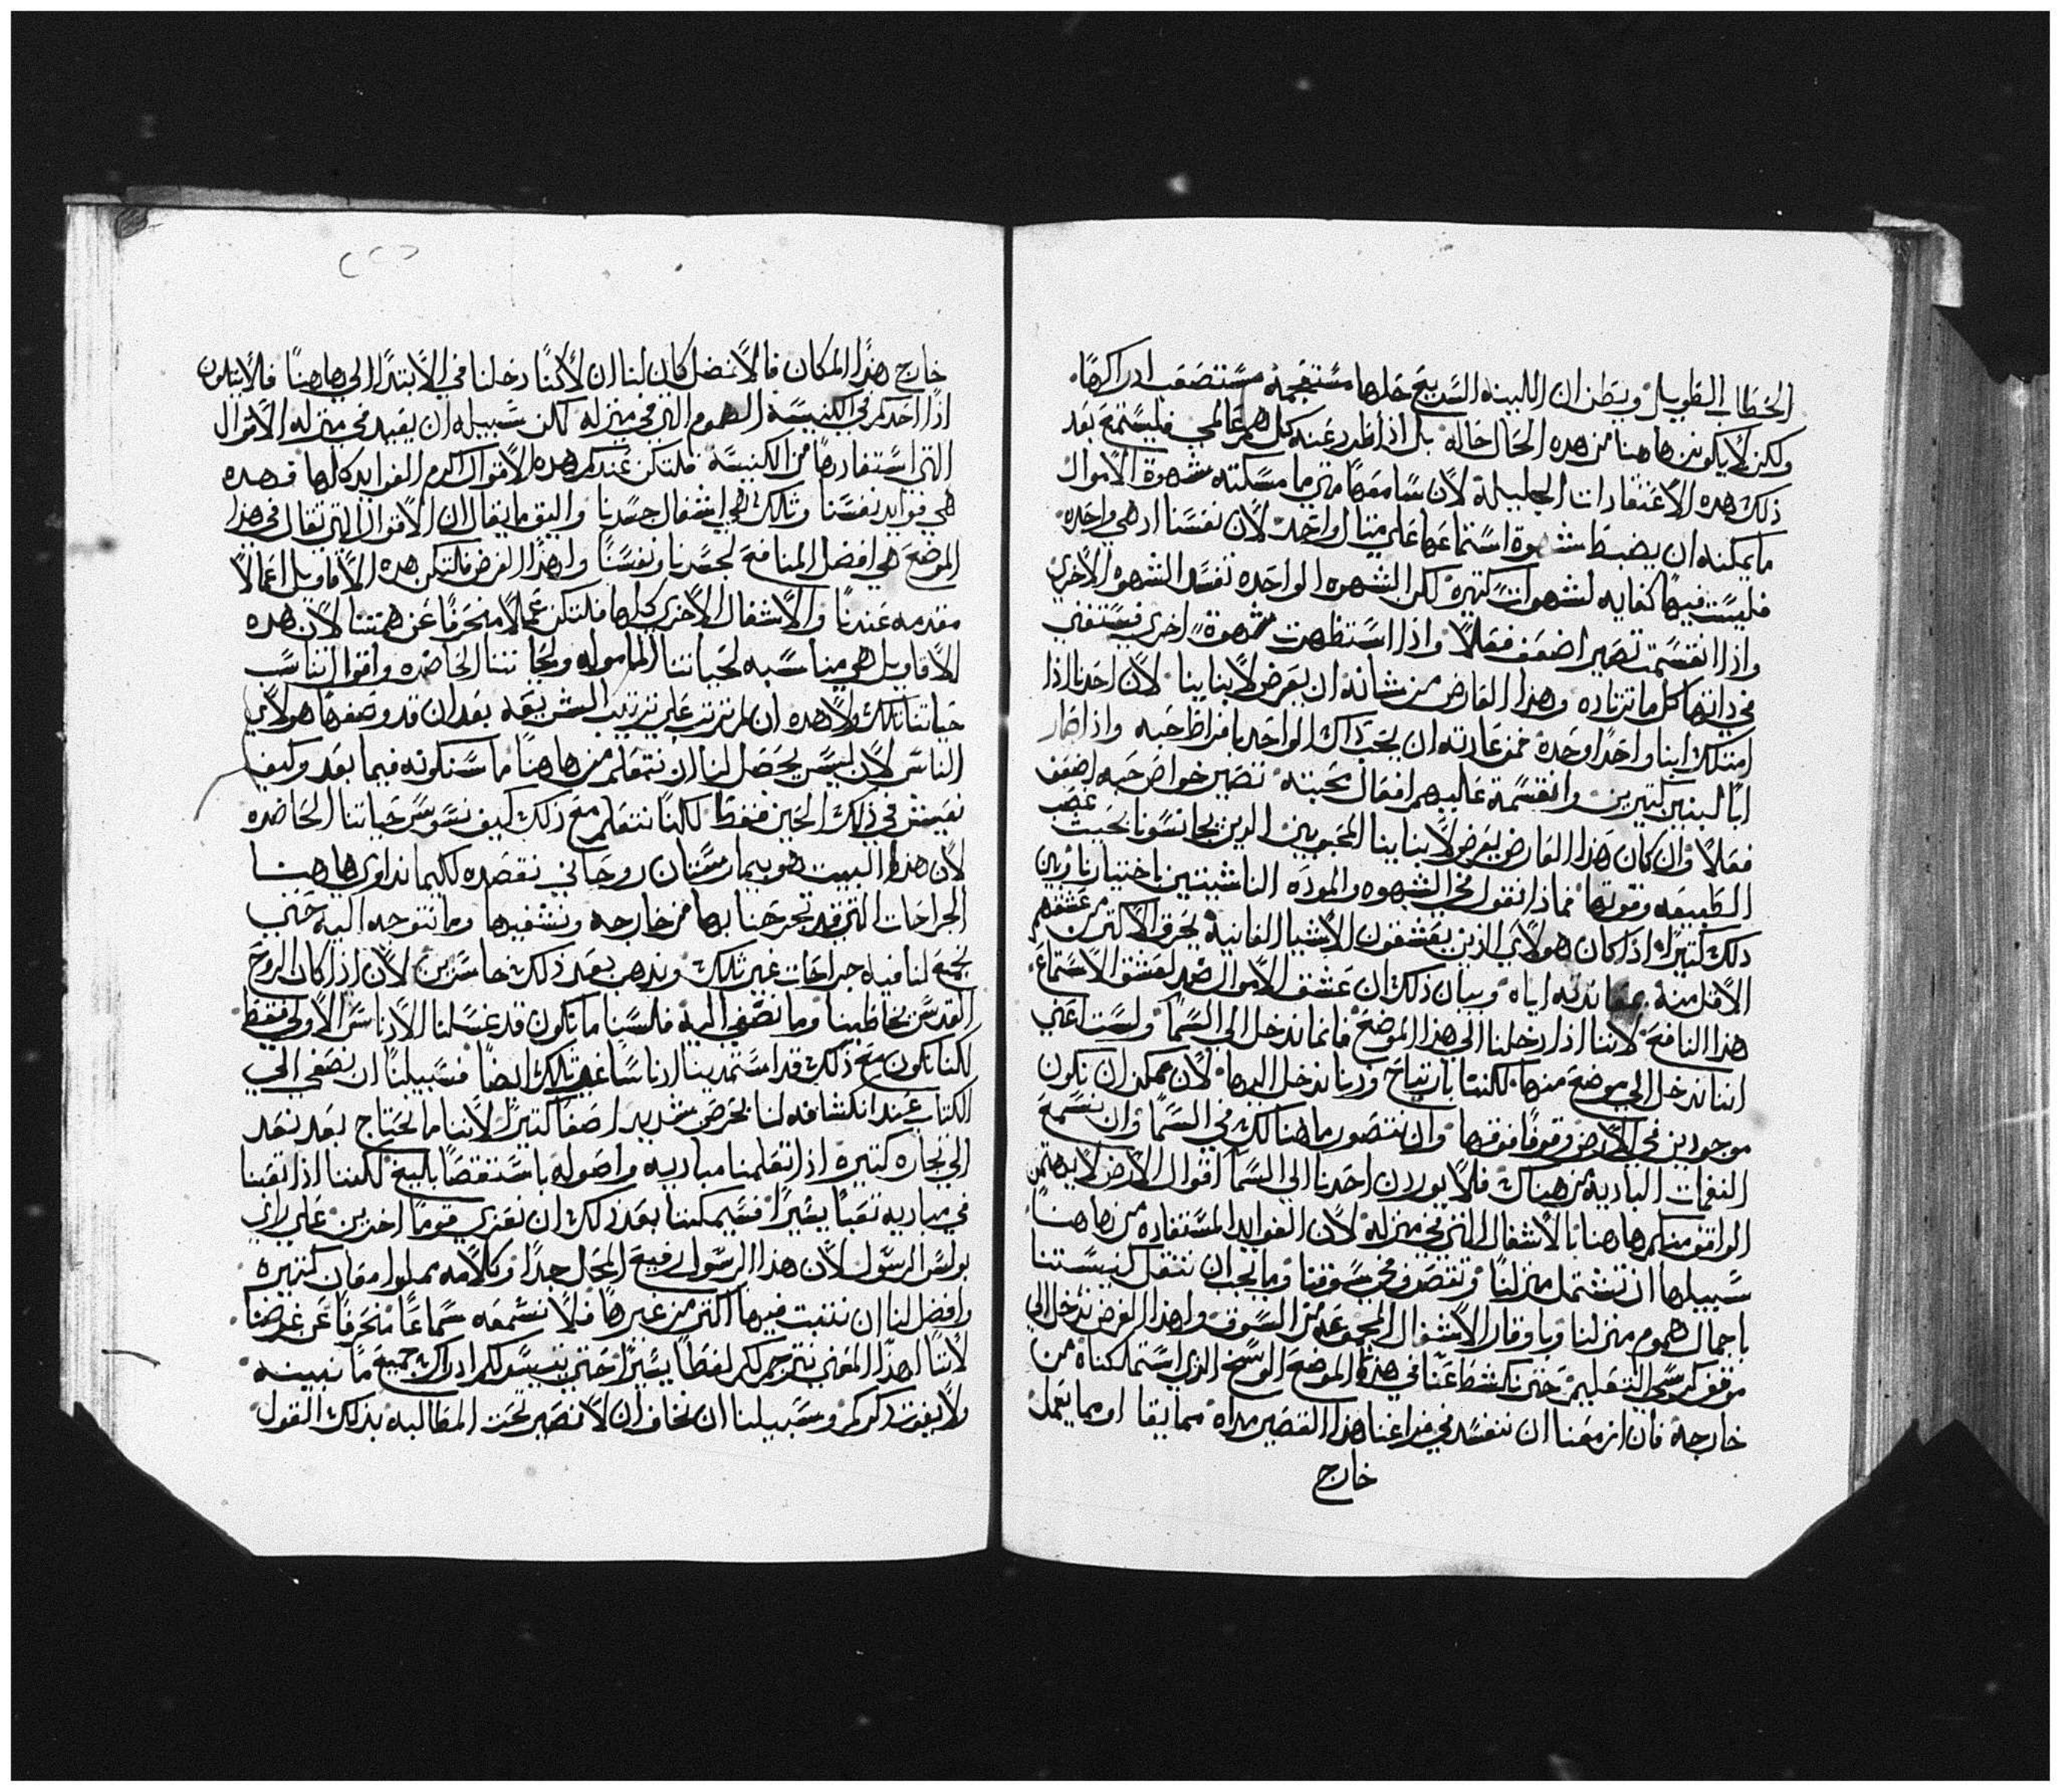 الخطاب الطويل ويظن ان اللينه السريع حلها مستعجمة مستصعب ادراكها
ولكن لا يكونن هاهنا من هذه الحال حاله بل اذا طرد عنه كل هم عالمي فليستمع بعد
ذلك هذه الاعتقادات الجليلة لان سامعها متي ما مسكته شهوة الاموال
ما يمكنه ان يضبط شهوة استماعها علي مثال واحد لان نفسنا اذ هي واحده
فليست فيها كفايه لشهوات كتيرة لكن الشهوه الواحده تفسد الشهوه الاخري
واذا انقسمت تصير اضعف فعلا واذا استظهرت شهوة اخري فستفني
في ذاتها كل ما ترتاده وهذا العارض من شانه ان يعرض لابناينا لان احدنا اذا
امتلك ابنا واحدا وحده فمن عادته ان يحب ذاك الواحد بافراط حبه واذا صار
ابا لبنين كتيرين وانقسمة عليهم افعال محبته تصير خواص حبه اضعف
فعلا وان كان هذا العارض يعرض لابناينا المحبوبين الدين يجانسونا بحيث غصب
الطبيعه وقوتها فماذا نقول في الشهوه والموده الناشيتين باختيارنا وبين
دلك كتيرا اذا كان هولاي الذين يعشقون الاشيا الفانية يحرق الاكتر من عشقهم
الاقل منه اياه وبيان ذلك ان عشق الاموال ضد لعشق الاستماع
هذا النافع لاننا اذا دخلنا الي هذا الموضع فانما ندخل الي السما ولست اعني
اننا ندخل الي موضع منها لكننا بارتياح ودنا ندخل اليها لان ممكن ان نكون
موجودين في الارض وقوفا فوقها وان نتصور ما هنالك في السما وان نسمع
النغمات البادية من هناك فلا يوردن احدنا الي السما اقوال الارض لا يهتمن
الواقف منكم هاهنا بالاشغال التي في منزله لان الفوايد المستفاده من هاهنا
سبيلها ان تشتمل منزلنا وتقتصد في سوقنا وما يجب ان نتقل كنيستنا
باحمال هموم منزلنا وباوقار الاشغال المجموعه من السوق ولهذا الغرض ندخل الي
موقف كرسي التعليم حتي نكشط عنا في هذا الموضع الوسخ الذي استملكناه من
خارجه فان ازمعنا ان نتفسد في فراغنا هذا القصير مداه مما يقا او مما يعمل
خارج
خارج هذا المكان فالافضل كان لنا ان لا كنا دخلنا في الابتدا الي هاهنا فلا يتلون
اذا احدكم في الكنيسة الهموم التي في منزله لكن سبيله ان يعيد في منزله الاقوال
التي استفادها من الكنيسة فلتكن عندكم هذه الاقوال اكرم الفوايد كلها فهده
هي فوايد نفسنا وتلك هي اشغال جسدنا واليق ما يقال ان الاقوال التي تقال في هذا
الموضع هي افضل المنافع لجسدنا ونفسنا ولهذا الغرض فلتكن هده الاقاويل اعمالا
مقدمه عندنا والاشغال الاخري كلها فلتكن عملا منحرفا عن همتنا لان هده
الاقاويل هي مناسبه لحياتنا الماموله ولحياتنا الحاضره واقوال تناسب
حياتنا تلك ولا هده ان لم تترتب علي ترتيب الشريعه بعد ان قد وضعها هولاي
الناس لان ليس يحصل لنا ان نتعلم من هاهنا ما سنكونه فيما بعد وكيف
نعيش في ذلك الحين فقط لكنا نتعلم مع ذلك كيف نسوس حياتنا الحاضره
لان هذا البيت هو بيمارستان روحاني نقصده لكيما نداوي هاهنا
الجراحات التي قد تجرحنا بها من خارجه ونشفيها وما نتوجه اليه حتي
نجمع لنا فيه جراحات غير تلك ونذهب بعد ذلك خاسرين لان اذا كان الروح
القدس يخاطبنا وما نصغي اليه فلسنا ما نكون قد غسلنا الادناس الاولي فقط
لكنا نكون مع ذلك قد استمدينا ادناسا غير تلك ايضا فسبيلنا ان نصغي الي
الكتاب عند انكشافه لنا بحرص شديد اصغا كتيرا لاننا ما نحتاج بعد نعد
الي نجاره كتيره اذا تعلمنا مباديه واصوله باستقصا بليغ لكننا اذا تعبنا
في مباديه تعبا يسيرا فسيمكننا بعد ذلك ان نعزي قوما اخرين علي راي
بولس الرسول لان هذا الرسول رفيع المحل جدا وكلامه مملوا معان كتيره
وافضل لنا ان نتبت فيها اكتر من غيرها فلا نسمعه سماعا منحرفا عن غرضنا
لاننا لهذا المعني نترجم لكم لفظا يسيرا حتي يتيسر لكم ادراك جميع ما نبينه
ولا يفوت ذكركم وسبيلنا ان نخاف ان لا نصير تحت المطالبه بذلك القول